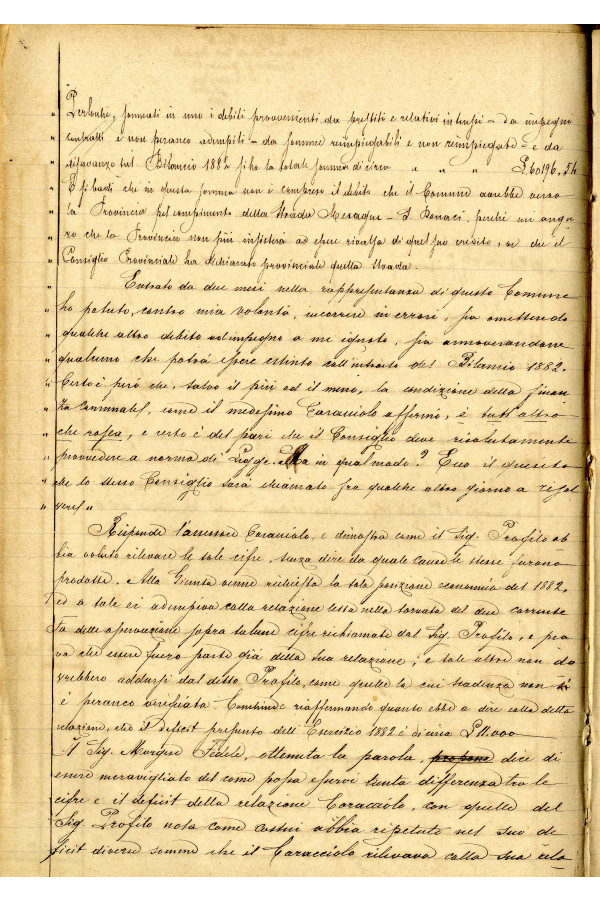 " Perloché, sommati in uno i debiti provvenienti da prestiti e relativi interessi - da impegni
" contratti e non peranco adempiti - da somme reimpiegabili e non reimpiegate - e da
" disavanzo sul Bilancio 1882 si ha la totale somma di circa " " " £ 60196.54
" E si badi che in questa somma non è compreso il debito che il Comune avrebbe verso
" la Provincia pel compimento della strada Mesagne - S. Donaci, perchè mi augu
" ro che la Provincia non più insisterà ad essere rivalsa di quel suo credito, or che il
" Consiglio Provinciale ha dichiarato provinciale quella strada.
" Entrato da due mesi nella rappresentanza di questo Comune
" ho potuto, contro mia volontà, incorrere in errori, sia omettendo
" qualche altro debito od impegno a me ignoto, sia annoverandone
" qualcuno che potrà essere estinto coll'entrate del Bilancio 1882.
" Certo è però che, salvo il più ed il meno, la condizione della finan
" za Comunale, come il medesimo Caracciolo affermò, è tutt'altro
" che rosea, e certo è del pari che il Consiglio deve risolutamente
" provvedere a norma di Legge. Ma in qual modo? Ecco il quesito
" che lo stesso Consiglio sarà chiamato fra qualche altro giorno a risol
" vere "
Risponde l'assessore Caracciolo, e dimostra come il Sig. Profilo ab
bia voluto rilevare le sole cifre, senza dire da quale cause le stesse furono
prodotte. Alla Giunta venne richiesta la sola posizione economica del 1882,
ed a tale ei adempiva colla relazione letta nella tornata del due corrente
Fa delle osservazioni sopra talune cifre richiamate dal Sig. Profilo, e pro
va che esse fecero parte già della sua relazione; e tale altre non do
vrebbero addursi dal ditto Profilo, come quelle la cui scadenza non
è peranco verificata. Conchiude riaffermando quanto ebbe a dire colla detta
relazione, che il deficit presunto dell'Esercizio 1882 è di circa £ 11.000
Il Sig. Morgese Fedele, ottenuta la parola, propone dice di
essere meravigliato del come possa esservi tanta differenza tra le
cifre e il deficit della relazione Caracciolo, con quelle del
Sig. Profilo nota come costui abbia ripetuto nel suo de
ficit diverse somme che il Caracciolo rilevava colla sua rela